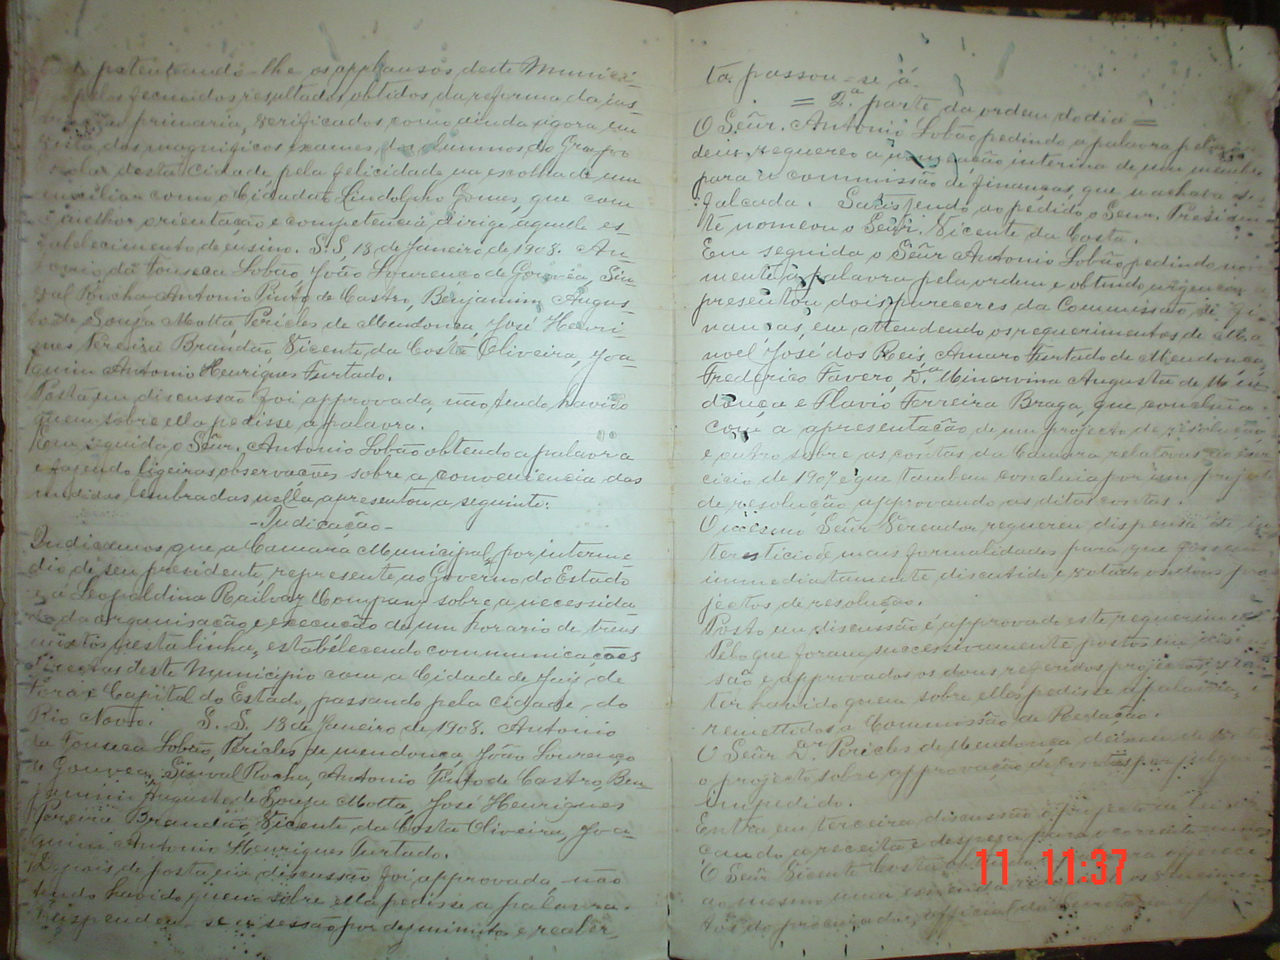 patenteando-lhe os applausos deste Munici-
pelos fecundos resultados obtidos da reforma da ins-
primaria, verificados como ainda agora, em
vista dos magnificos exames, dos alumnos do Grupo
desta cidade pela felicidade na escolha de um
auxiliar como o Cidadão Lindolpho Gomes, que com
a melhor orientação e competencia dirige aquelle es-
tabelecimento de ensino. S.S, 18 de Janeiro de 1908. An-
tonio da Fonseca Lobão, João Lourenço de Gouvêa, Sin-
val Rocha, Antonio Pinto de Castro, Benjamim Augus-
to de Souza Motta, Pericles de Mendonça, José Henri-
ques Pereira Brandão, Vicente da Costa Oliveira, Joa-
quim Antonio Henriques Furtado.
Posta em discussão foi approvada, não tendo havido
quem sobre ella pedisse a palavra.
Em seguida o Sñr. Antonio Lobão obtendo a palavra
e fazendo ligeiras observações sobre a conveniencia das
medidas lembradas nella apresentou a seguinte:
-Indicação-
Indicamos que a Camara Municipal, por interme-
dio de seu presidente, represente ao Governo do Estado
e a Leopoldina Railway Company sobre a necessida
de da organisação e execução de um horario de trens
mixtos nesta linha, estabelecendo communicações
directas deste Municipio com a Cidade de Juiz de
Fora e Capital do Estado, passando pela cidade do
Rio Novo. S. S, 18 de Janeiro de 1908. Antonio
da Fonseca Lobão, Pericles de Mendonça, João Lourenço
de Gouvea, Sinval Rocha, Antonio Pinto de Castro, Ben-
jamim Augusto de Souza Motta, José Henriques
Pereira Brandão, Vicente da Costa Oliveira, Joa-
quim Antonio Henriques Furtado.
Depois de posta em discussão foi approvada, não
tendo havido quem sobre ella pedisse a palavra.
Suspendeu-se a sessão por dez minutos e reaber-
ta, passou-se á
= 2.ª parte da ordem do dia =
O Señr. Antonio Lobão pedindo a palavra pela or-
dem, requereu a nomeação interina de um membro
para a commissão de finanças, que se achava des-
falcada. Satisfendo ao pedido o Senr. Presiden-
te nomeou o Señr. Vicente da Costa.
Em seguida o Señr Antonio Lobão pedindo nova-
mente a palavra pela ordem e obtendo urgencia a-
presentou dois pareceres da Commissão de Fi-
nanças, em attendendo os requerimentos de Ma-
noel José dos Reis, Amaro Furtado de Mendonça,
Frederico Favero, D.ª Minervina Augusta de Men-
donça e Flavio Ferreira Braga, que concluia
com a apresentação de um projecto de resolução
e outro sobre as contas da Camara relativas ao exer-
cicio de 1907 e que tambem concluia por um projecto
de resolução approvando as ditas contas.
O mesmo Señr Vereador requereu dispensa de in-
tersticio e mais formalidades para que fossem
immediatamente discutido e votado os dous pro-
jectos de resolução.
Posto em discussão é approvado este requerimento
Pelo que foram successivamente postos em discus-
são e approvados os dous referidos projectos, sem
ter havido quem sobre elles pedisse a palavra, e
remettidos a Commissão de Redação.
O Señr Dr. Pericles de Mendonça, deixou de votar
o projecto sobre approvação de contas por julgar-se
impedido.
Entra em terceira discussão o projecto de lei
orçando a receita e despeza para o corrente anno
O Señr Vicente Costa
ao mesmo uma emenda
do procurador, official da secretaria e
11 11:37